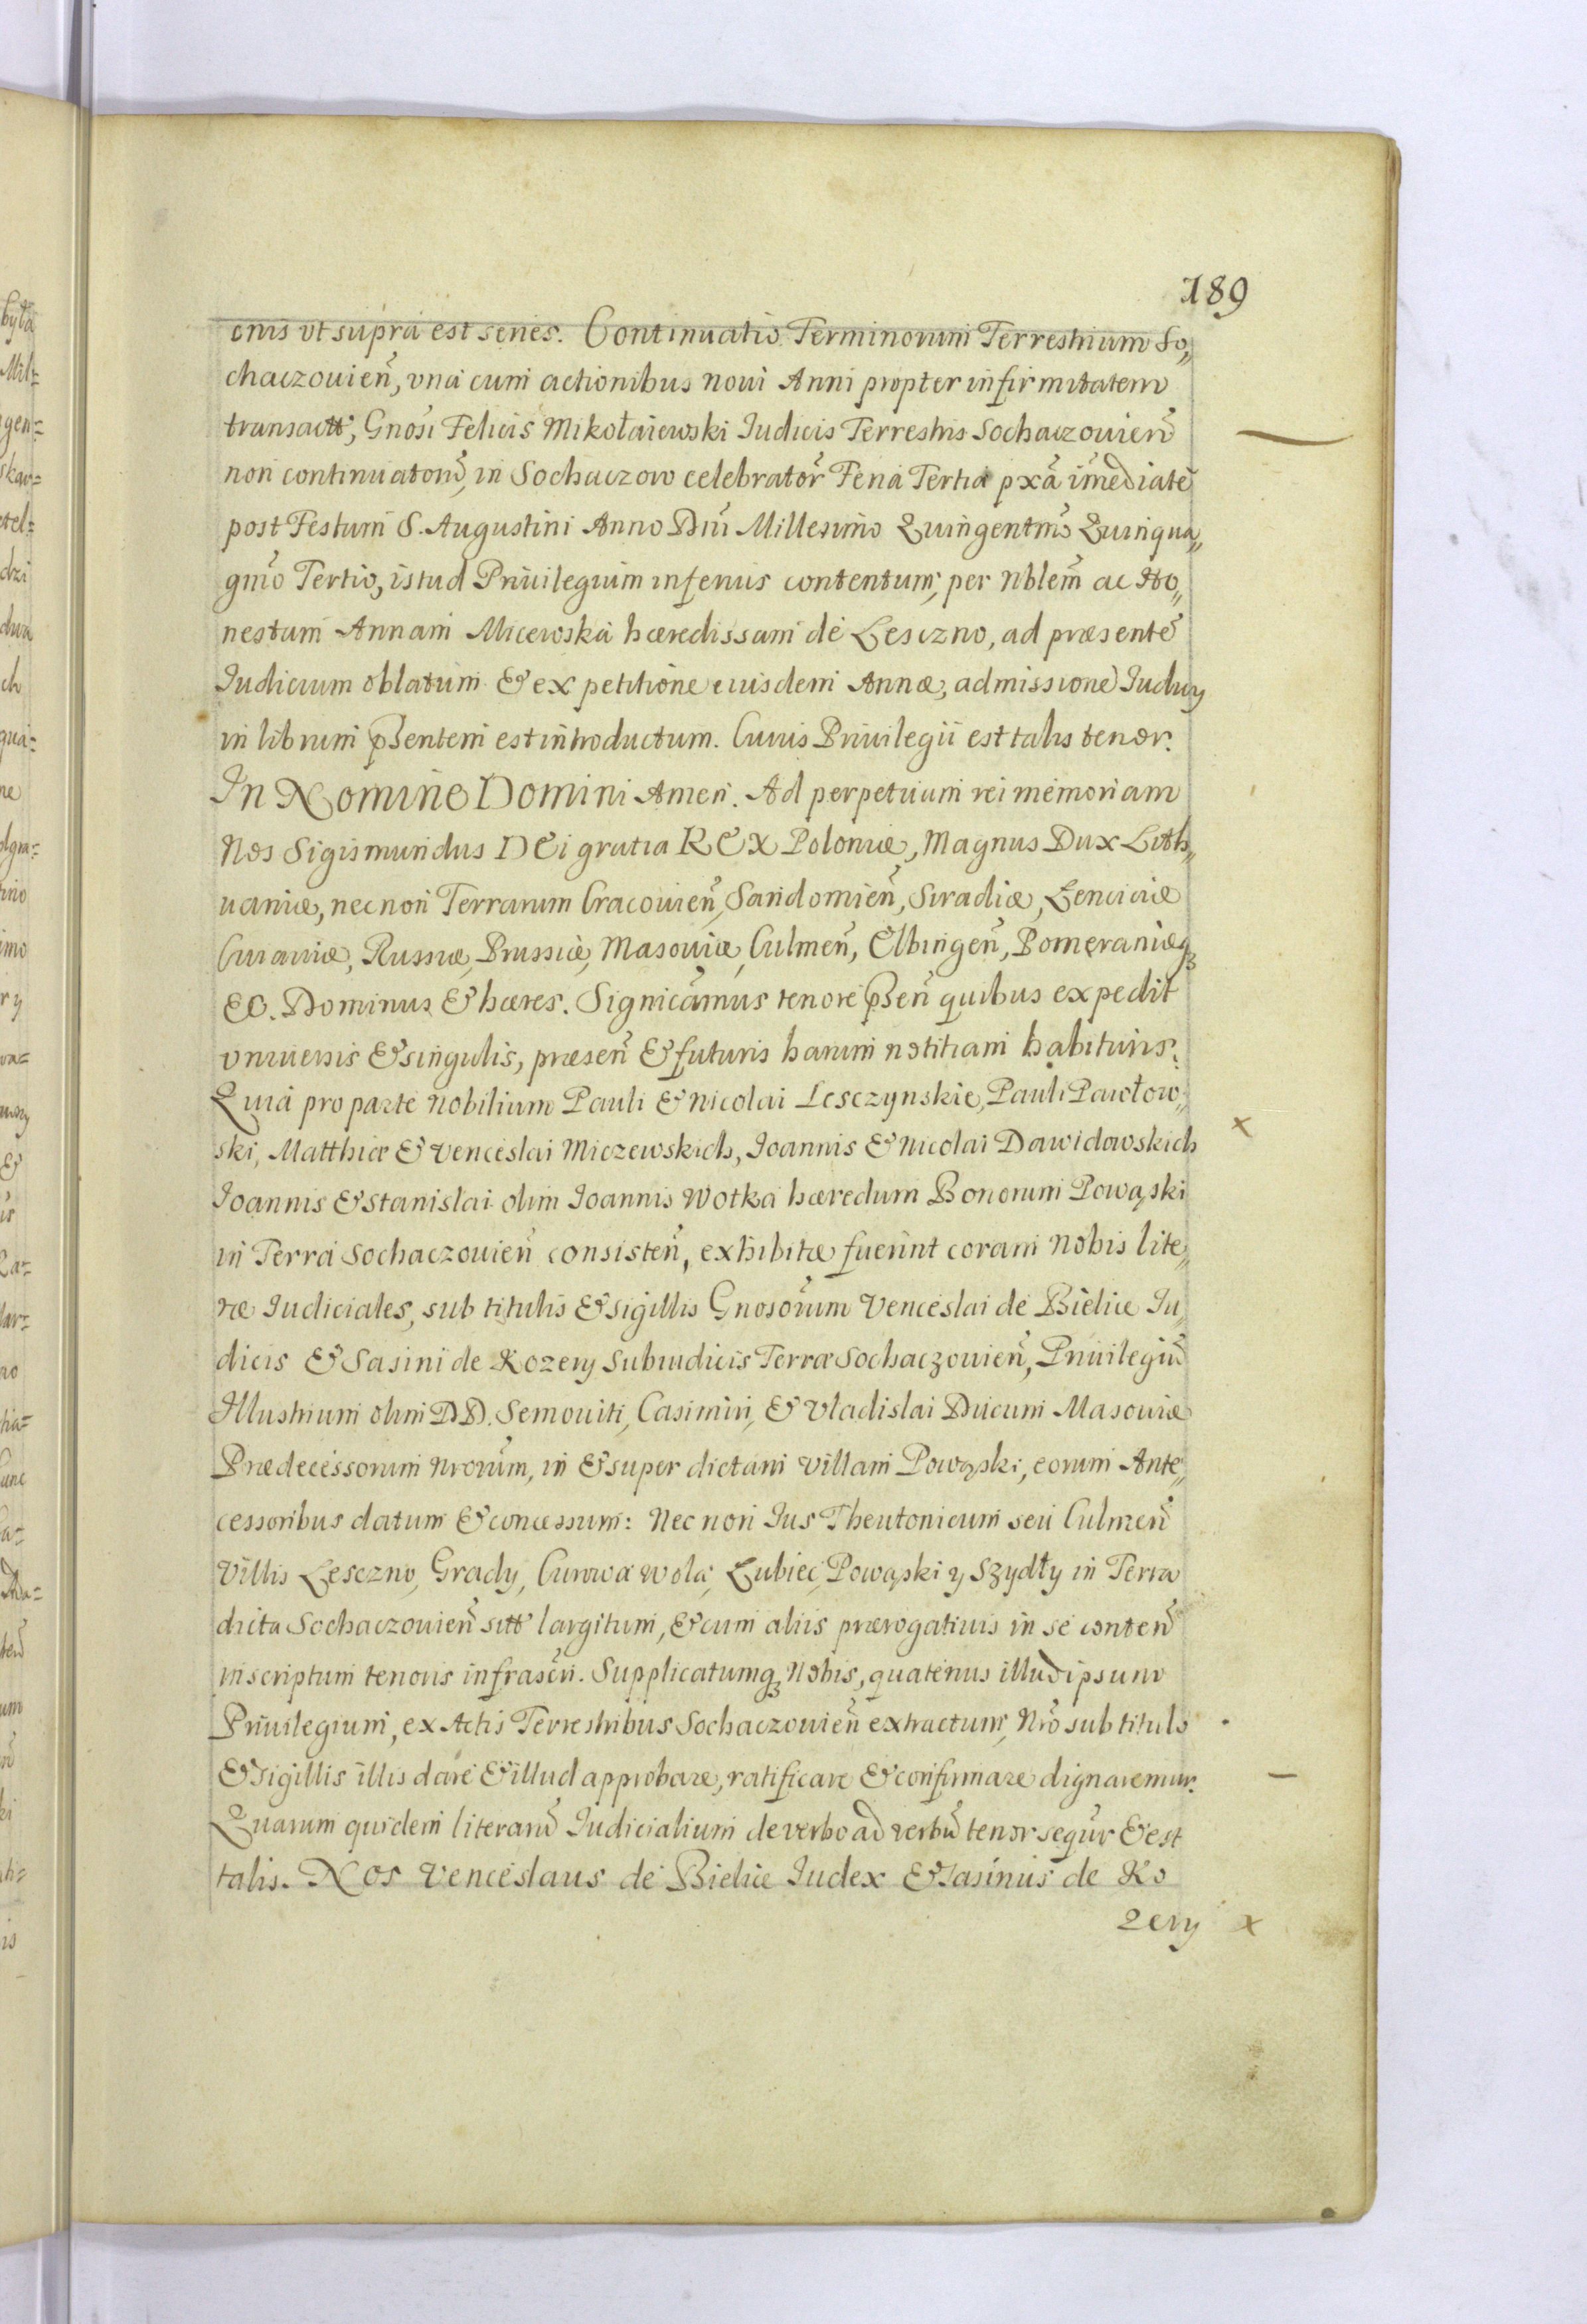 189
onis vt supra est series. Continuatio Terminorum Terrestrium So„
chaczouieñ, vna cum actionibus noui Anni propter infirmitatem
transactt, Gnosi Felicis Mikołaiewski Iudicis Terrestris Sochaczouieñ
non continuatorũ, in Sochaczow celebrator̃ Feria Tertia pxã im̃ediate
post Festum S. Augustini Anno Dnĩ Millesimo Quingentmõ Quinqua„
gmõ Tertio, istud Priuilegium inferius contentum, per Nblem̃ ac Ho„
nestam Annam Micewska hæredissam de Lesczno, ad præsente
Iudicium oblatum & ex petitione eiusdem Annæ, admissione Iudicij
in librum pßentem est introductum. Cuius Priuilegii est talis tenor.
In Nomine Domini Amen. Ad perpetuam rei memoriam
Nos Sigismundus DEi gratia REX Poloniæ, Magnus Dux Lith„
uaniæ, nec non Terrarum Cracouieñ, Sandomieñ, Siradiæ, Lenciciæ
Cuiauiæ, Russiæ, Prussiæ, Masouiæ, Culmeñ, Elbingeñ, Pomeraniæq
&c. Dominus & hæres. Signicãmus tenore pßeñ quibus expedit
vniuersis & singulis, præseñ & futuris harum notitiam habituris.
Quia pro parte Nobilium Pauli & Nicolai Lesczynskie, Pauli Pawłow„
ski, Matthiæ & Venceslai Miczewskich, Joannis & Nicolai Dawidowskich x
Joannis & Stanislai olim Joannis Wotka hæredum Bonorum Powąski
in Terra Sochaczouieñ consisteñ, exhibitæ fuerunt coram Nobis lite„
ræ Iudiciales, sub titulis & sigillis Gnosorũm Venceslai de Bielice Iu„
dicis & Sasini de Kozery Subiudicis Terræ Sochaczouieñ, Priuilegiũ
Illustrium olim DD. Semouiti, Casimiri, & Vladislai Ducum Masouiæ
Prædecessorum Nrorũm, in & super dictam Villam Powąski, eorum Ante„
cessoribus datum & concessum: Nec non Ius Theutonicum seu Culmeñ
Villis Lesczno, Grady, Curowa Wola, Lubiec, Powąski y Szydły in Terra
dicta Sochaczouieñ sitt largitum, & cum aliis prærogatiuis in se conteñ
inscriptum tenoris infrascri. Supplicatumq Nobis, quatenus illud ipsum
Priuilegium, ex Actis Terrestribus Sochaczouieñ extractum, Nrõ sub titulo
& sigillis illis dare & illud approbare, ratificare & confirmare dignaremur.
Quarum quidem literarũ Iudicialium de verbo ad verbũ tenor sequr̃ & est
talis. Nos Venceslaus de Bielice Iudex & Sasinus de Ko
zery x